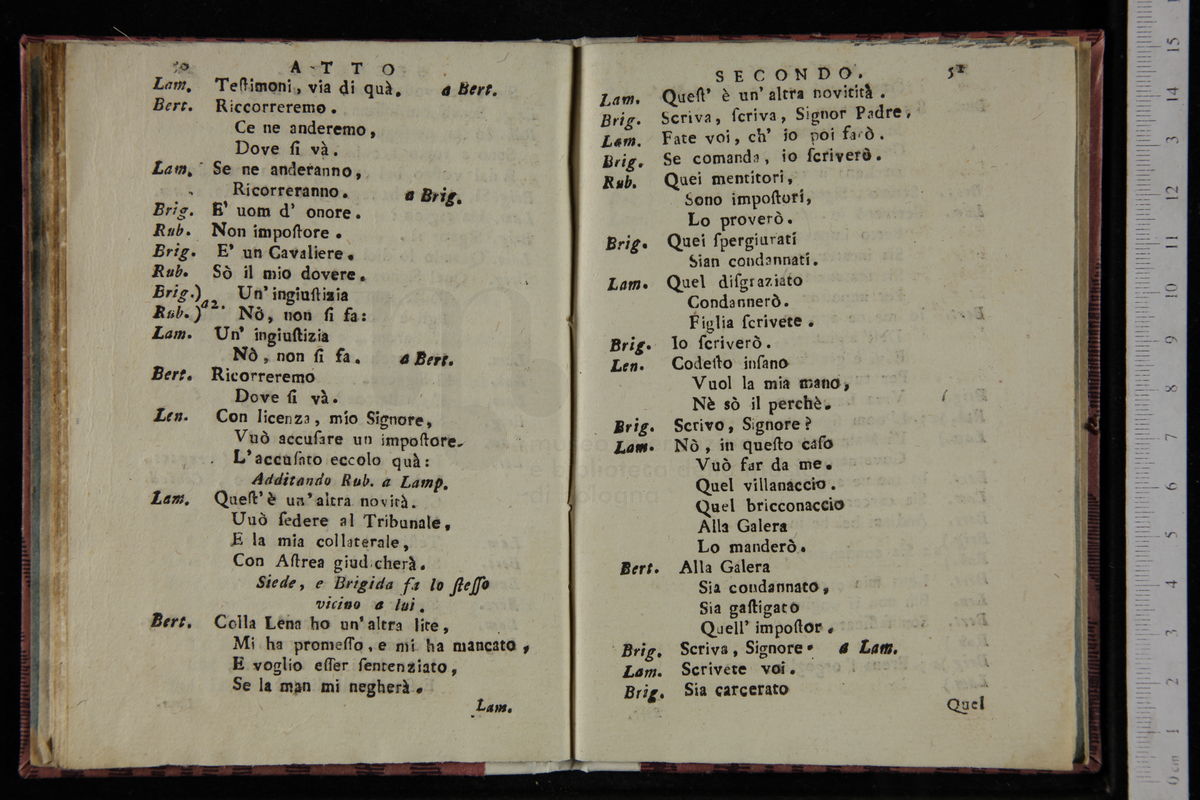 50 ATTO
Lam. Teſtimoni, via di quà. a Bert.
Bert. Riccorreremo.
Ce ne anderemo,
Dove ſi và.
Lam. Se ne anderanno,
Ricorreranno. a Brig.
Brig. E' uom d' onore.
Rub. Non impoſtore.
Brig. E' un Cavaliere.
Rub. Sò il mio dovere.
Brig.) a2. Un' ingiuſtizia
Rub.) Nò, non ſi fa:
Lam. Un' ingiuſtizia
Nò, non ſi fa. a Bert.
Bert. Ricorreremo
Dove ſi và.
Len. Con licenza, mio Signore,
Vuò accuſare un impoſtore.
L'accuſato eccolo quà:
Additando Rub. a Lamp.
Lam. Queſt' è un' altra novità.
Uuò ſedere al Tribunale,
E la mia collaterale,
Con Aſtrea giudicherà.
Siede, e Brigida fa lo ſteſſo
vicino a lui.
Bert. Colla Lena ho un' altra lite,
Mi ha promeſſo, e mi ha mancato,
E voglio eſſer ſentenziato,
Se la man mi negherà.
Lam.
SECONDO. 51
Lam. Queſt' è un' altra novitità.
Brig. Scriva, ſcriva, Signor Padre,
Lam. Fate voi, ch' io poi farò.
Brig. Se comanda, io ſcriverò.
Rub. Quei mentitori,
Sono impoſtori,
Lo proverò.
Brig. Quei ſpergiurati
Sian condannati.
Lam. Quel diſgraziato
Condannerò.
Figlia ſcrivete.
Brig. Io ſcriverò.
Len. Codeſto inſano
Vuol la mia mano,
Nè sò il perchè.
Brig. Scrivo, Signore?
Lam. Nò, in queſto caſo
Vuò far da me.
Quel villanaccio.
Quel bricconaccio
Alla Galera
Lo manderò.
Bert. Alla Galera
Sia condannato,
Sia gaſtigato
Quell' impoſtor.
Brig. Scriva, Signore. a Lam.
Lam. Scrivete voi.
Brig. Sia carcerato
Quel